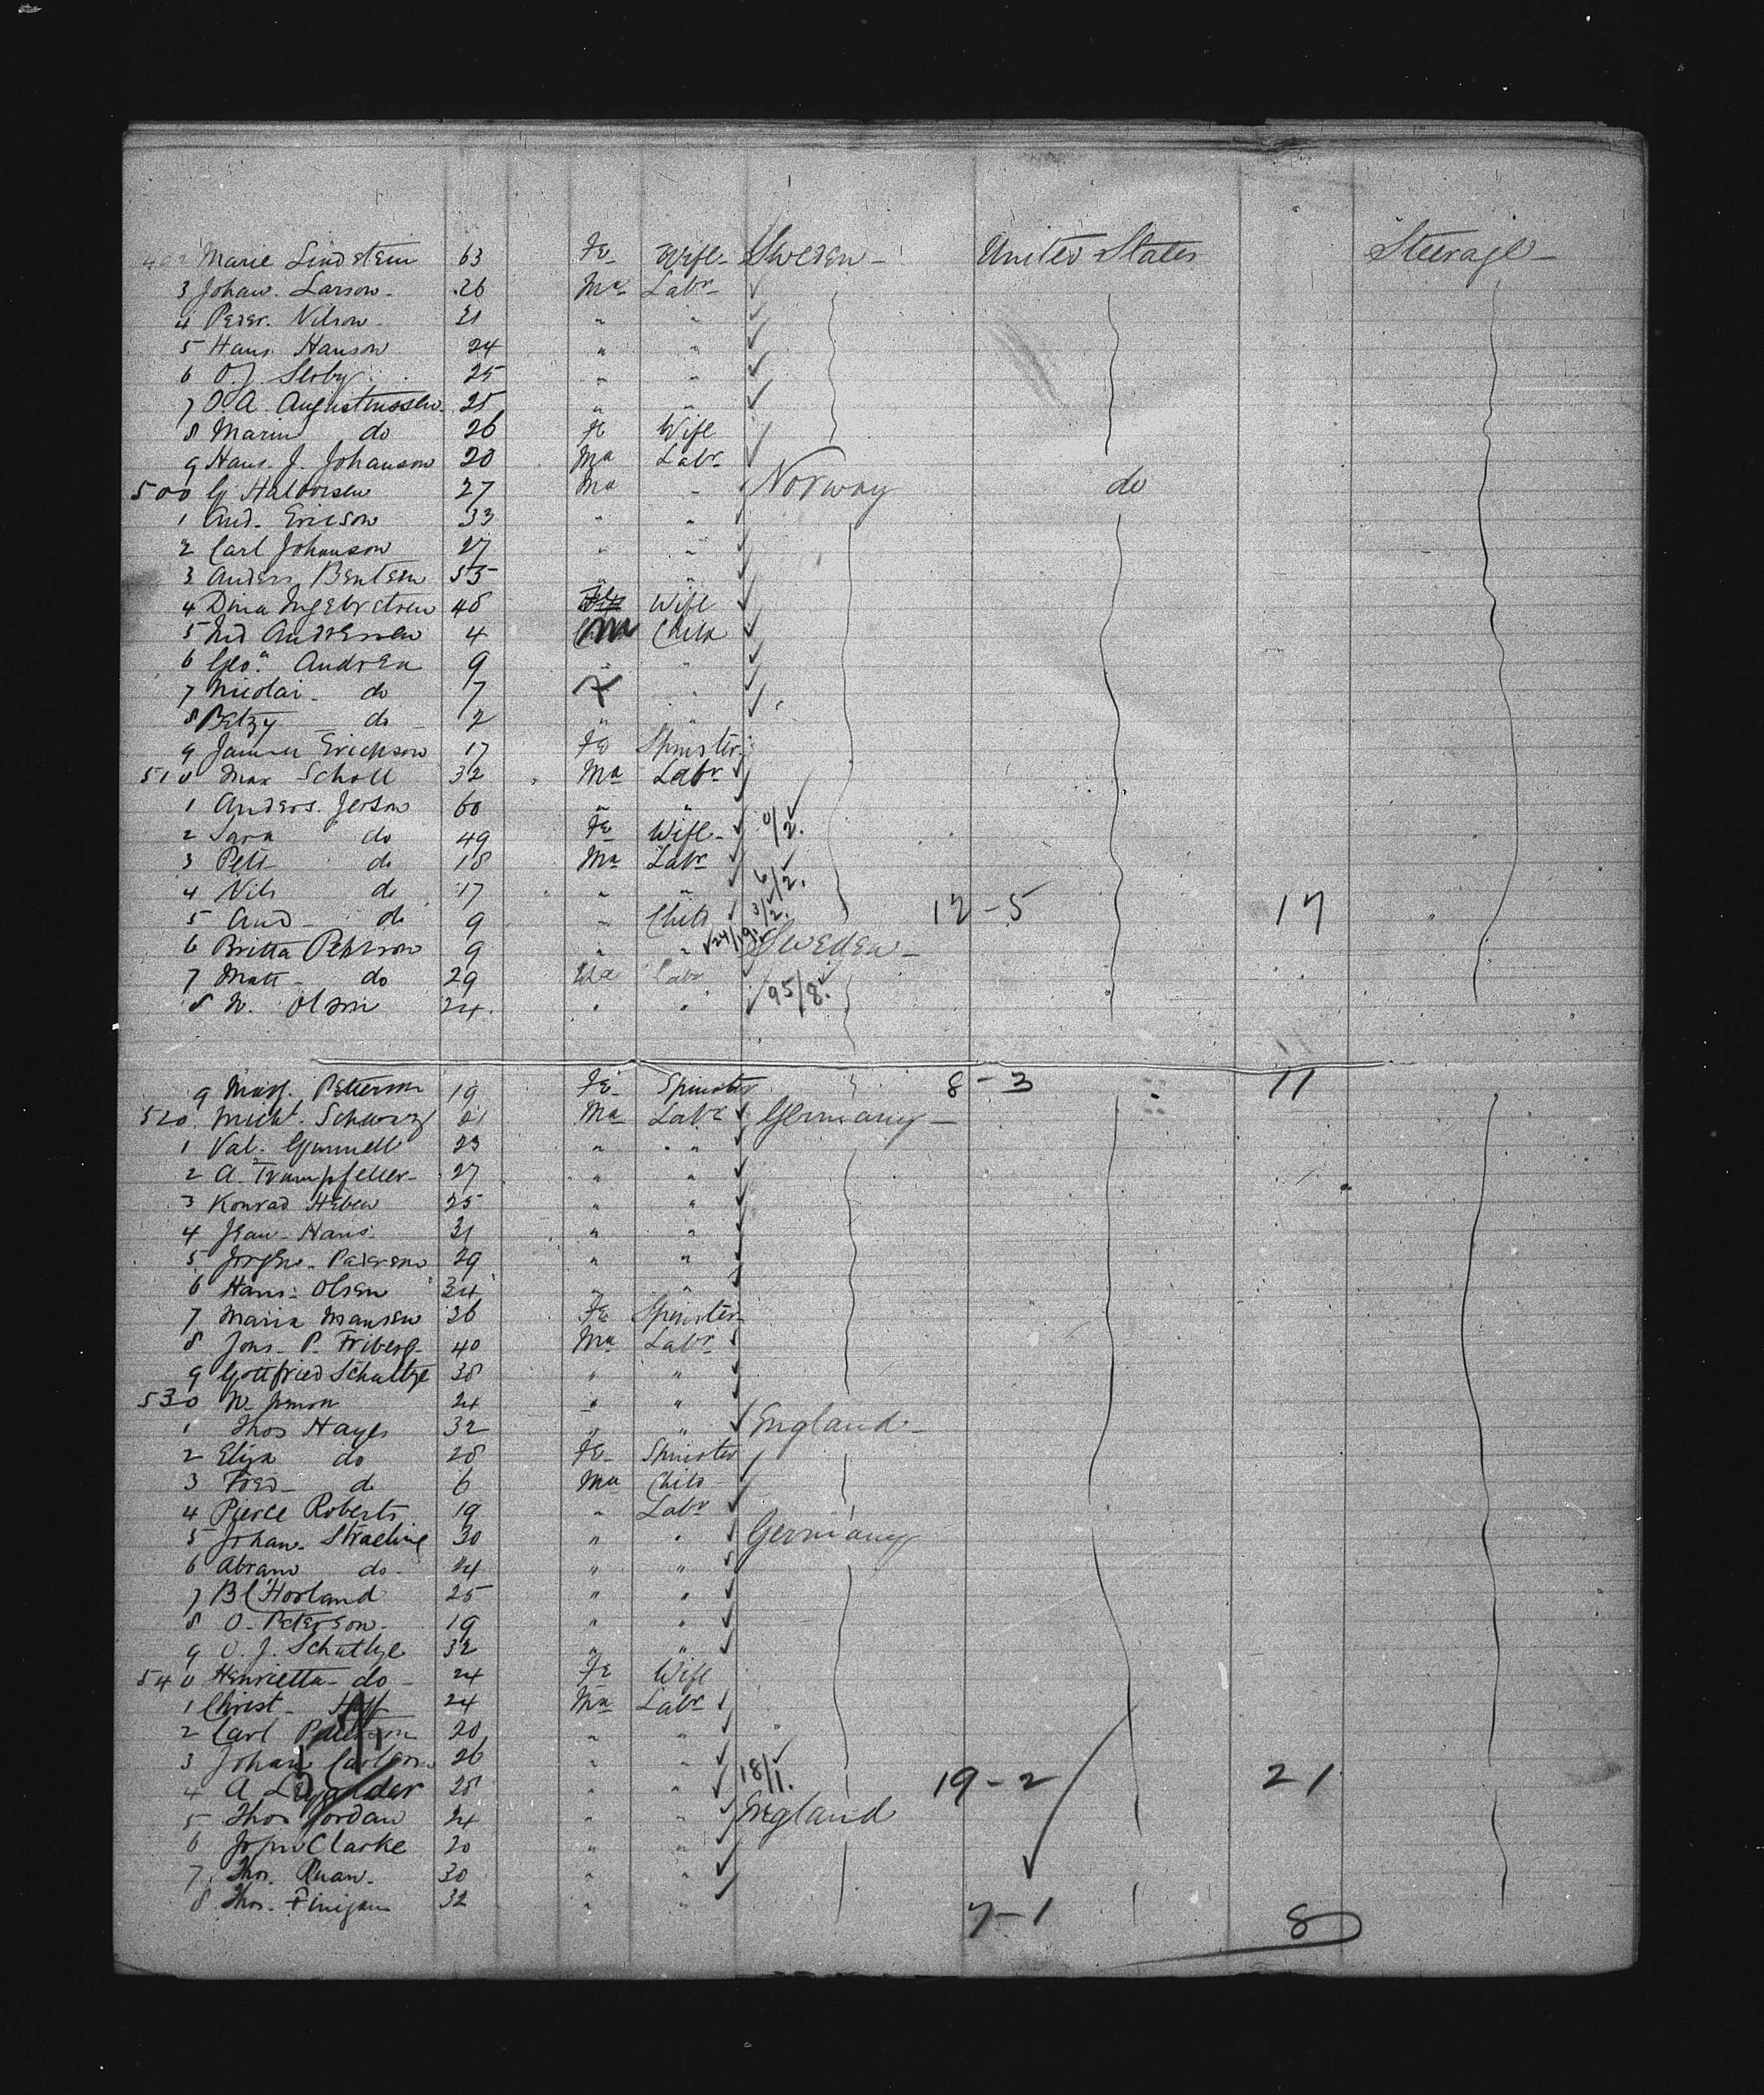 492 Marie Lindstein 63 Fe Wife Sweden United States Steerage
3 Johan Larson 26 Ma Labr
4 Peder Nilson 21 " "
5 Hans Hanson 24 " "
6 O. J. 25 " "
7 O. A. Augustinssen 25 " "
8 Marin do 26 Fe Wife
9 Hans J. Johanson 20 Ma Labr
500 G Haldorsen 27 Ma " Norway do
1 And. Ericson 33 " "
2 Carl Johanson 27 " "
3 Anders Bentsen 55 " "
4 Dina Ingebretsen 48 Fe Wife
5 Andressen 4 Ma Child
6 Geo. Andrea 9 " "
7 Nicolai do 7 "
8 Betzy do 2 " "
9 Erickson 17 Fe Spinster
510 Max Scholl 32 Ma Labr
1 Anders Jerson 60 " "
2 Sara do 49 Fe Wife 0/2.
3 Petr do 18 Ma Labr
4 Nils do 17 " " 6/2.
5 And do 9 " Child 3/2. 12-5 17
6 Britta Pehrson 9 " " 24/19. Sweden
7 Matt do 29 Ma Labr
8 N. Olson 24 " " 95/8.
9 Petterson 19 Fe Spinster 8-3 11
520 Michl. Schwarz Ma Labr Germany
1 Val. Gumnell 23 " "
2 A. Trampfeller 27 " "
3 Konrad Heben 25 " "
4 Jean Hans 31 " "
5 Pedersen 29 " "
6 Hans Olsen 34 " "
7 Maria Mansen 26 Fe Spinster
8 Jons P. Friberg 40 Ma Labr
9 Gottfried Schultze 38 " "
530 N. 24 " "
1 Thos Hayes 32 " " England
2 Eliza do 28 Fe Spinster
3 Fred do 6 Ma Child
4 Pierce Roberts 19 " Labr
5 Johan Straeling 30 " " Germany
6 Abram do 24 " "
7 Horland 25 " "
8 O. Peterson 19 " "
9 O. J. Schultze 32 " "
540 Henrietta do 24 Fe Wife
1 Christ 24 Ma Labr
2 Carl 20 " "
3 Johan Carlson 26 " "
4 A 28 " " 18/1. 19-2 21
5 Thos Jordan 24 " " England
6 John Clarke 20 " "
7 Thos. Ruan 30 " "
8 Thos. Finigan 32 " " 7-1 8